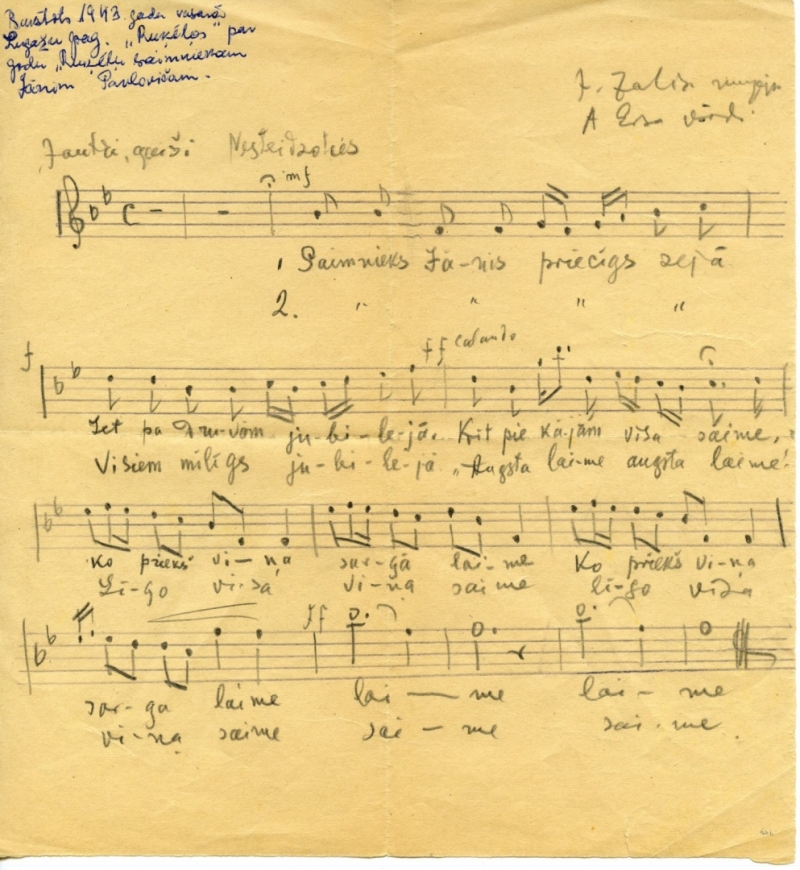 Rakstīts 1943. gada vasarā
Lugažu pag. "Rukēļos" par
godu "Rukēļu" saimniekam
Jānim Pavlovičam.
J. Zaļiņa
A Ersa vārdi
Jautri, gaiši Nesteidzoties
mf
1 Saimnieks Jā-nis priecīgs sējā
2. " " " "
f ff
Iet pa dru-vām ju-bi-le-jā. Krīt pie kājām visa saime,
Visiem mīlīgs ju-bi-le-jā "Augsta lai-me augsta laime!
Ko prieks vi-ņa sar-gā lai-me Ko prieks vi-ņa
Lī-go vi-sa vi-ņa saime lī-go visa
ff
sar-gā laime lai — me lai - me
vi-ņa saime sai — me sai-me